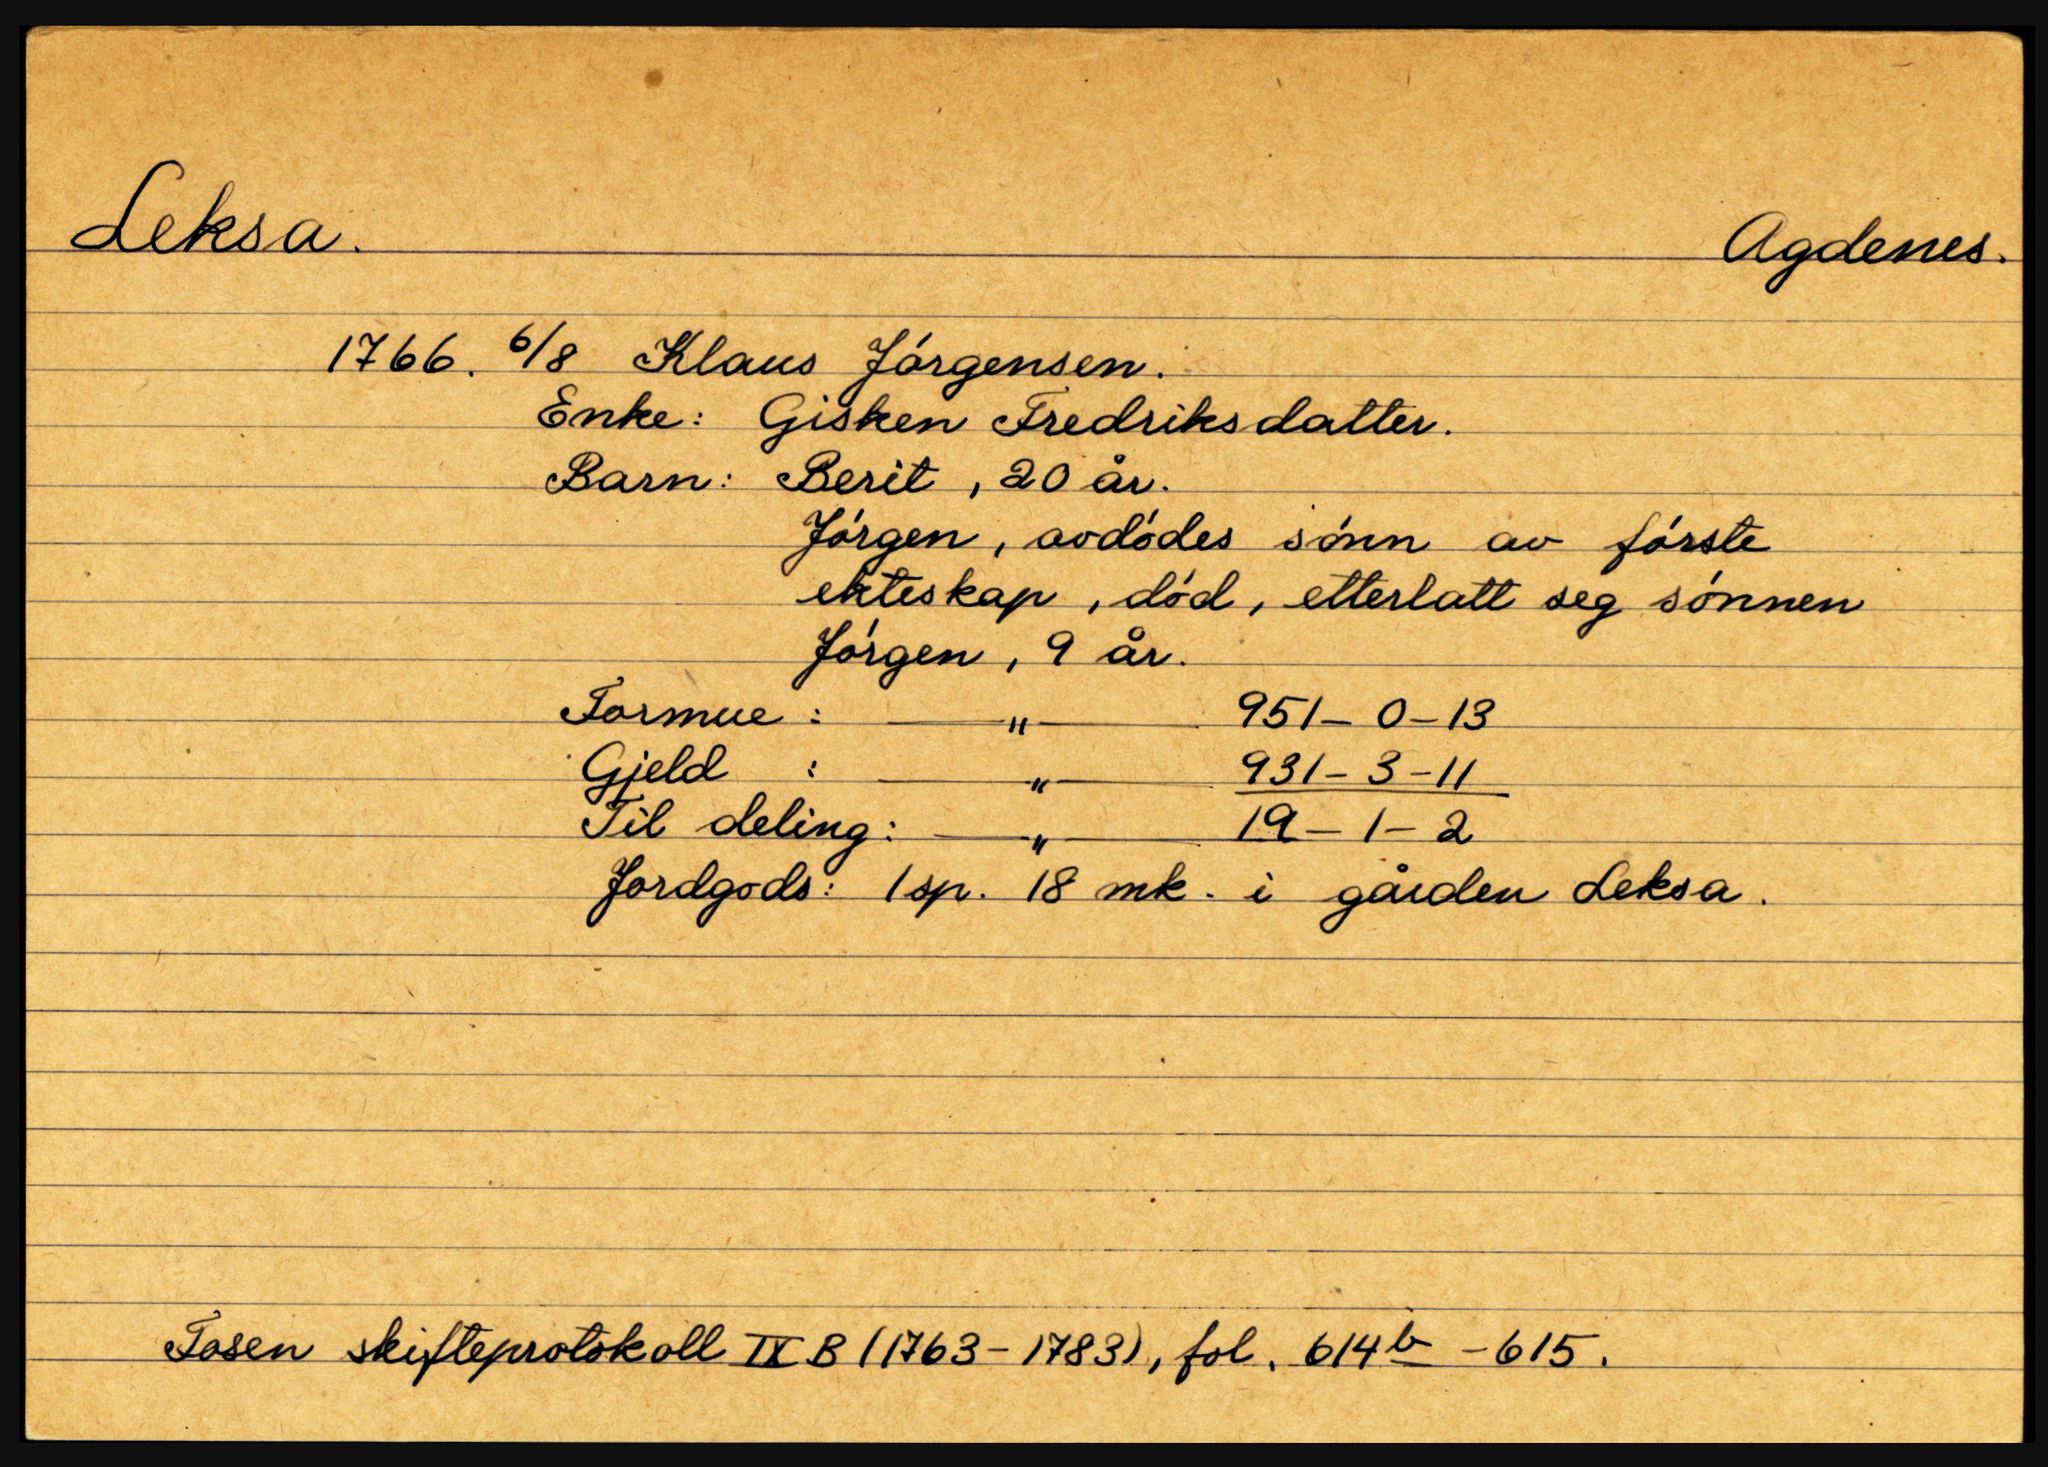 Leksa. Agdenes.
1766. 6/8 Klaus Jörgensen.
Enke: Gisken Fredriksdatter.
Barn: Berit, 20 år.
Jórgen, avdódes sónn av fórste
ekteskap, dód, etterlatt seg sónnen
Jórgen, 9 år.
Formue: — " — 951 - 0 - 13
Gjeld : — " — 931 - 3 - 11
Til deling: — " — 19 - 1 - 2
Jordgods: 1 sp. 18 mk. i gården Leksa.
Fosen skifteprotokoll IX B (1763 - 1783), fol. 614b - 615.